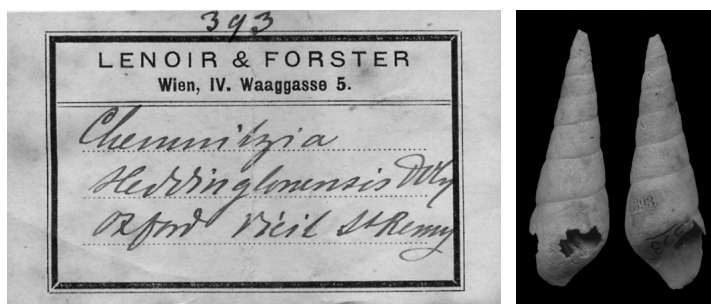 393
LENOIR & FORSTER
Wien, IV. Waaggasse 5.
Chemnitzia
Heddinglonensis
Oxford Vieil St Remy
393